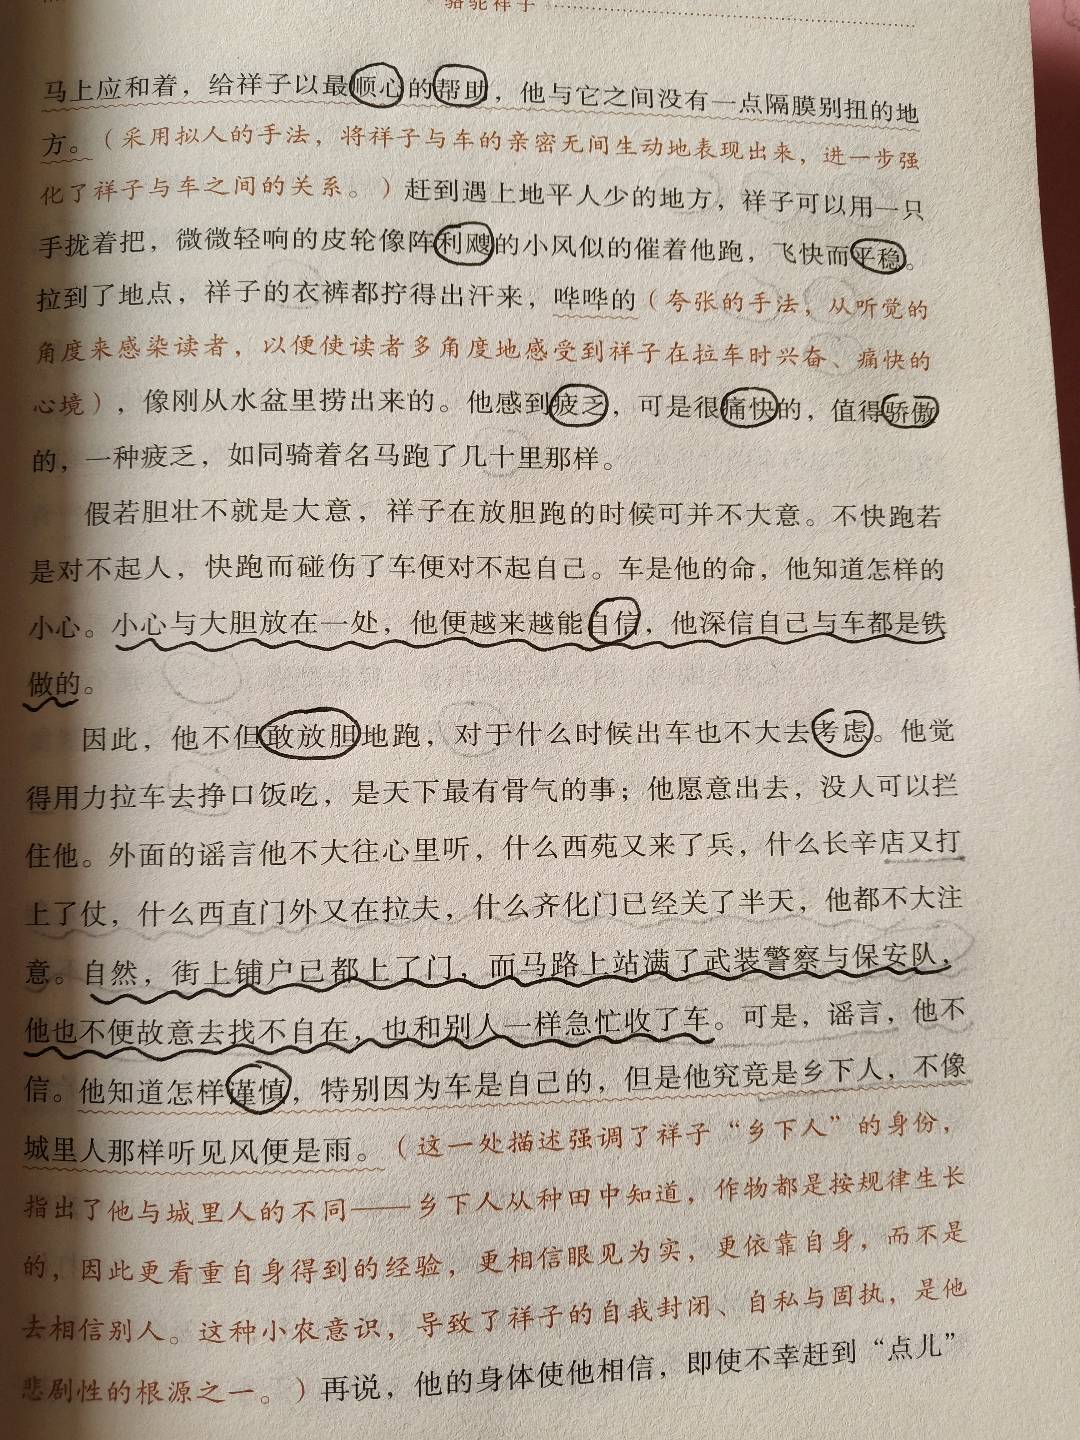 骆驼祥子
马上应和着，给祥子以最顺心的帮助，他与它之间没有一点隔膜别扭的地
方。（采用拟人的手法，将祥子与车的亲密无间生动地表现出来，进一步强
化了祥子与车之间的关系。）赶到遇上地平人少的地方，祥子可以用一只
手拢着把，微微轻响的皮轮像阵利飕的小风似的催着他跑，飞快而平稳。
拉到了地点，祥子的衣裤都拧得出汗来，哗哗的（夸张的手法，从听觉的
角度来感染读者，以便使读者多角度地感受到祥子在拉车时兴奋、痛快的
心境），像刚从水盆里捞出来的。他感到疲乏，可是很痛快的，值得骄傲
的，一种疲乏，如同骑着名马跑了几十里那样。
假若胆壮不就是大意，祥子在放胆跑的时候可并不大意。不快跑若
是对不起人，快跑而碰伤了车便对不起自己。车是他的命，他知道怎样的
小心。小心与大胆放在一处，他便越来越能自信，他深信自己与车都是铁
做的。
因此，他不但敢放胆地跑，对于什么时候出车也不大去考虑。他觉
得用力拉车去挣口饭吃，是天下最有骨气的事；他愿意出去，没人可以拦
住他。外面的谣言他不大往心里听，什么西苑又来了兵，什么长辛店又打
上了仗，什么西直门外又在拉夫，什么齐化门已经关了半天，他都不大注
意。自然，街上铺户已都上了门，而马路上站满了武装警察与保安队，
他也不便故意去找不自在，也和别人一样急忙收了车。可是，谣言，他不
信。他知道怎样谨慎，特别因为车是自己的，但是他究竟是乡下人，不像
城里人那样听见风便是雨。（这一处描述强调了祥子“乡下人”的身份，
指出了他与城里人的不同——乡下人从种田中知道，作物都是按规律生长
的，因此更看重自身得到的经验，更相信眼见为实，更依靠自身，而不是
去相信别人。这种小农意识，导致了祥子的自我封闭、自私与固执，是他
悲剧性的根源之一。）再说，他的身体使他相信，即使不幸赶到“点儿”